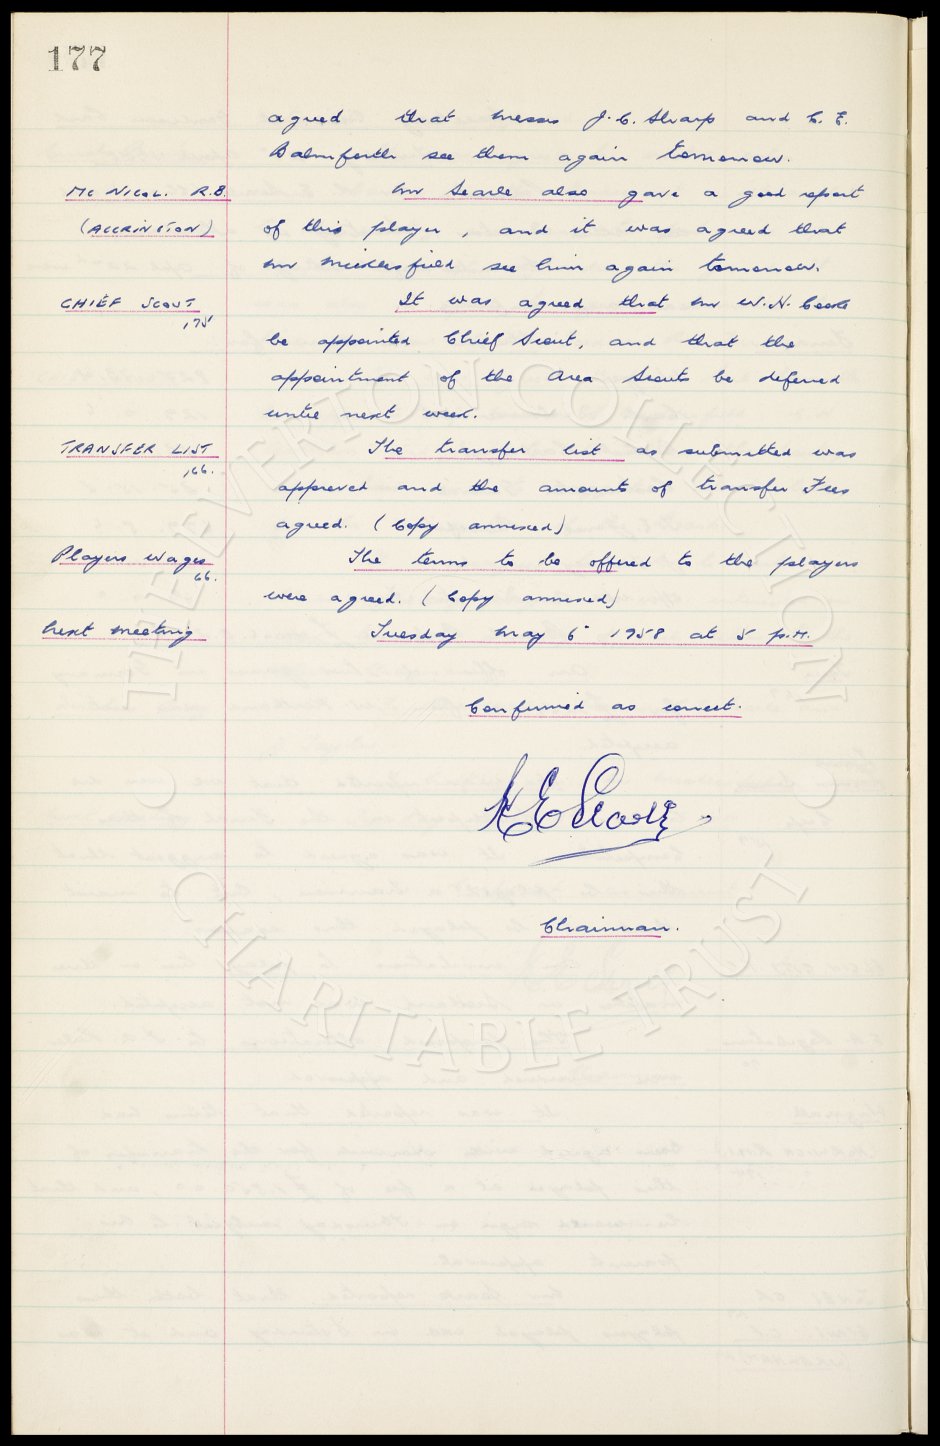 177
agreed that Messrs J. C. Sharp and C. E.
Balmforth see them again tomorrow.
Mc NICOL. R.B. Mr Searle also gave a good report
(ACCRINGTON) of this player, and it was agreed that
Mr Micklesfield see him again tomorrow.
CHIEF SCOUT It was agreed that Mr W. H. Cooke
175
be appointed Chief Scout, and that the
appointment of the Area Scouts be deferred
until next week.
TRANSFER LIST The transfer list as submitted was
166.
approved and the amounts of transfer Fees
agreed. (Copy annexed)
Players wages The terms to be offered to the players
66.
were agreed. (Copy annexed)
Next meeting Tuesday May 6 1958 at 5 p.m.
Confirmed as correct.
Chairman.
THE EVERTON COLLECTION
CHARITABLE TRUST